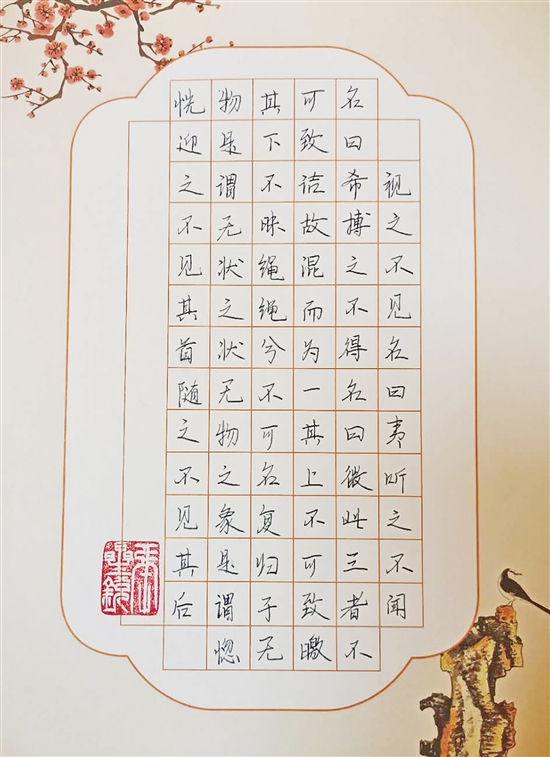 视之不见名曰夷听之不闻
名曰希博之不得名曰微此三者不
可致诘故混而为一其上不可致曒
其下不昧绳绳兮不可名复归于无
物是谓无状之状无物之象是谓惚
恍迎之不见其首随之不见其后